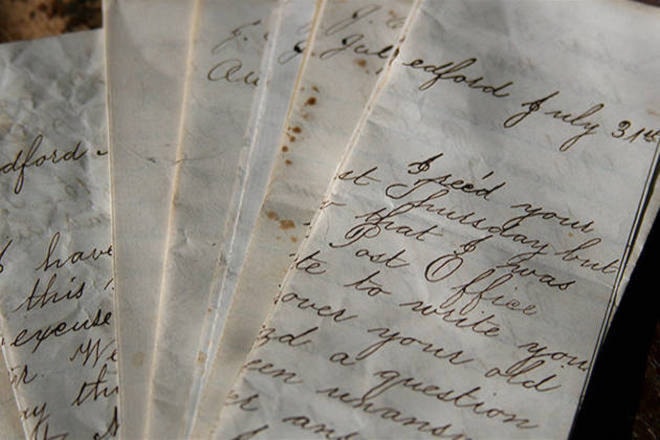 dford
I have
this
excuse
r. We
ay th
J.
Au
J.
Jul
edford July 31st
I rec'd your
st Thursday but
r that I was
Post Office
te to write you
over your old
nd a question
een unansw
er an